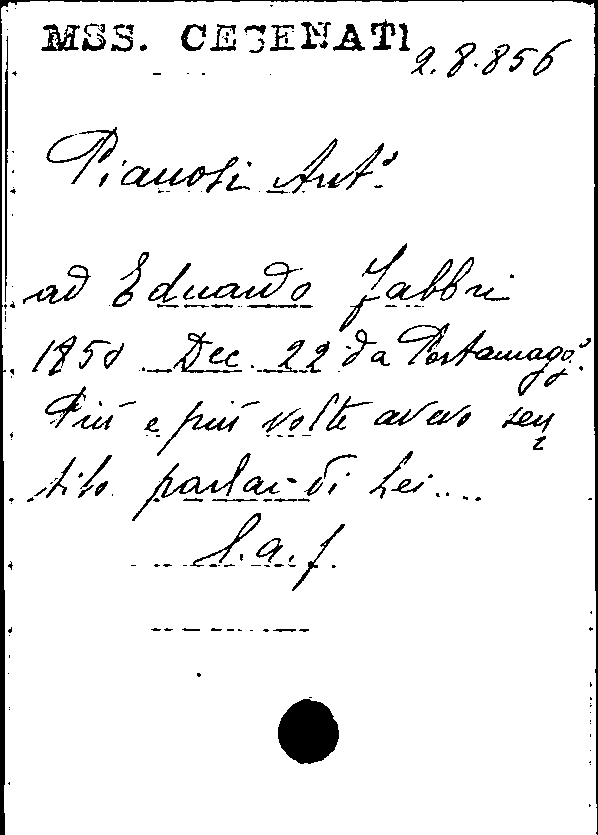 MSS. CESENATI
2.8.856
Pianosi Antº
ad Eduardo Fabbri
1850 Dec. 22 da Portamaggº.
Più e più volte avevo sen
tito parlar di Lei....
L.a.f.